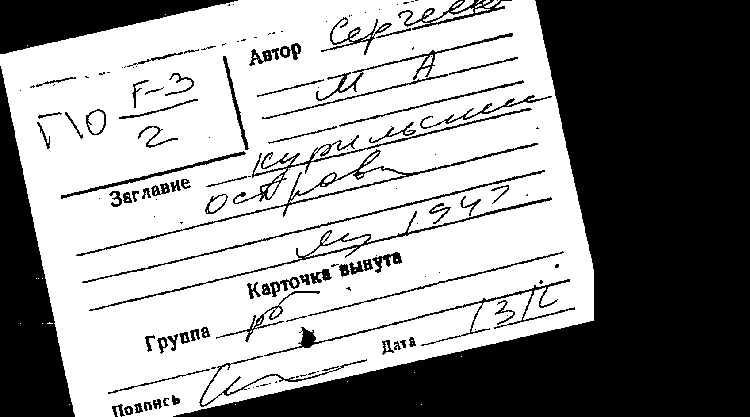 Автор Сергеев
М А
ПО F-3
2
Заглавие Курильские
острова
М 1947
Карточка вынута
Группа рб
Подпись
Дата 13/II